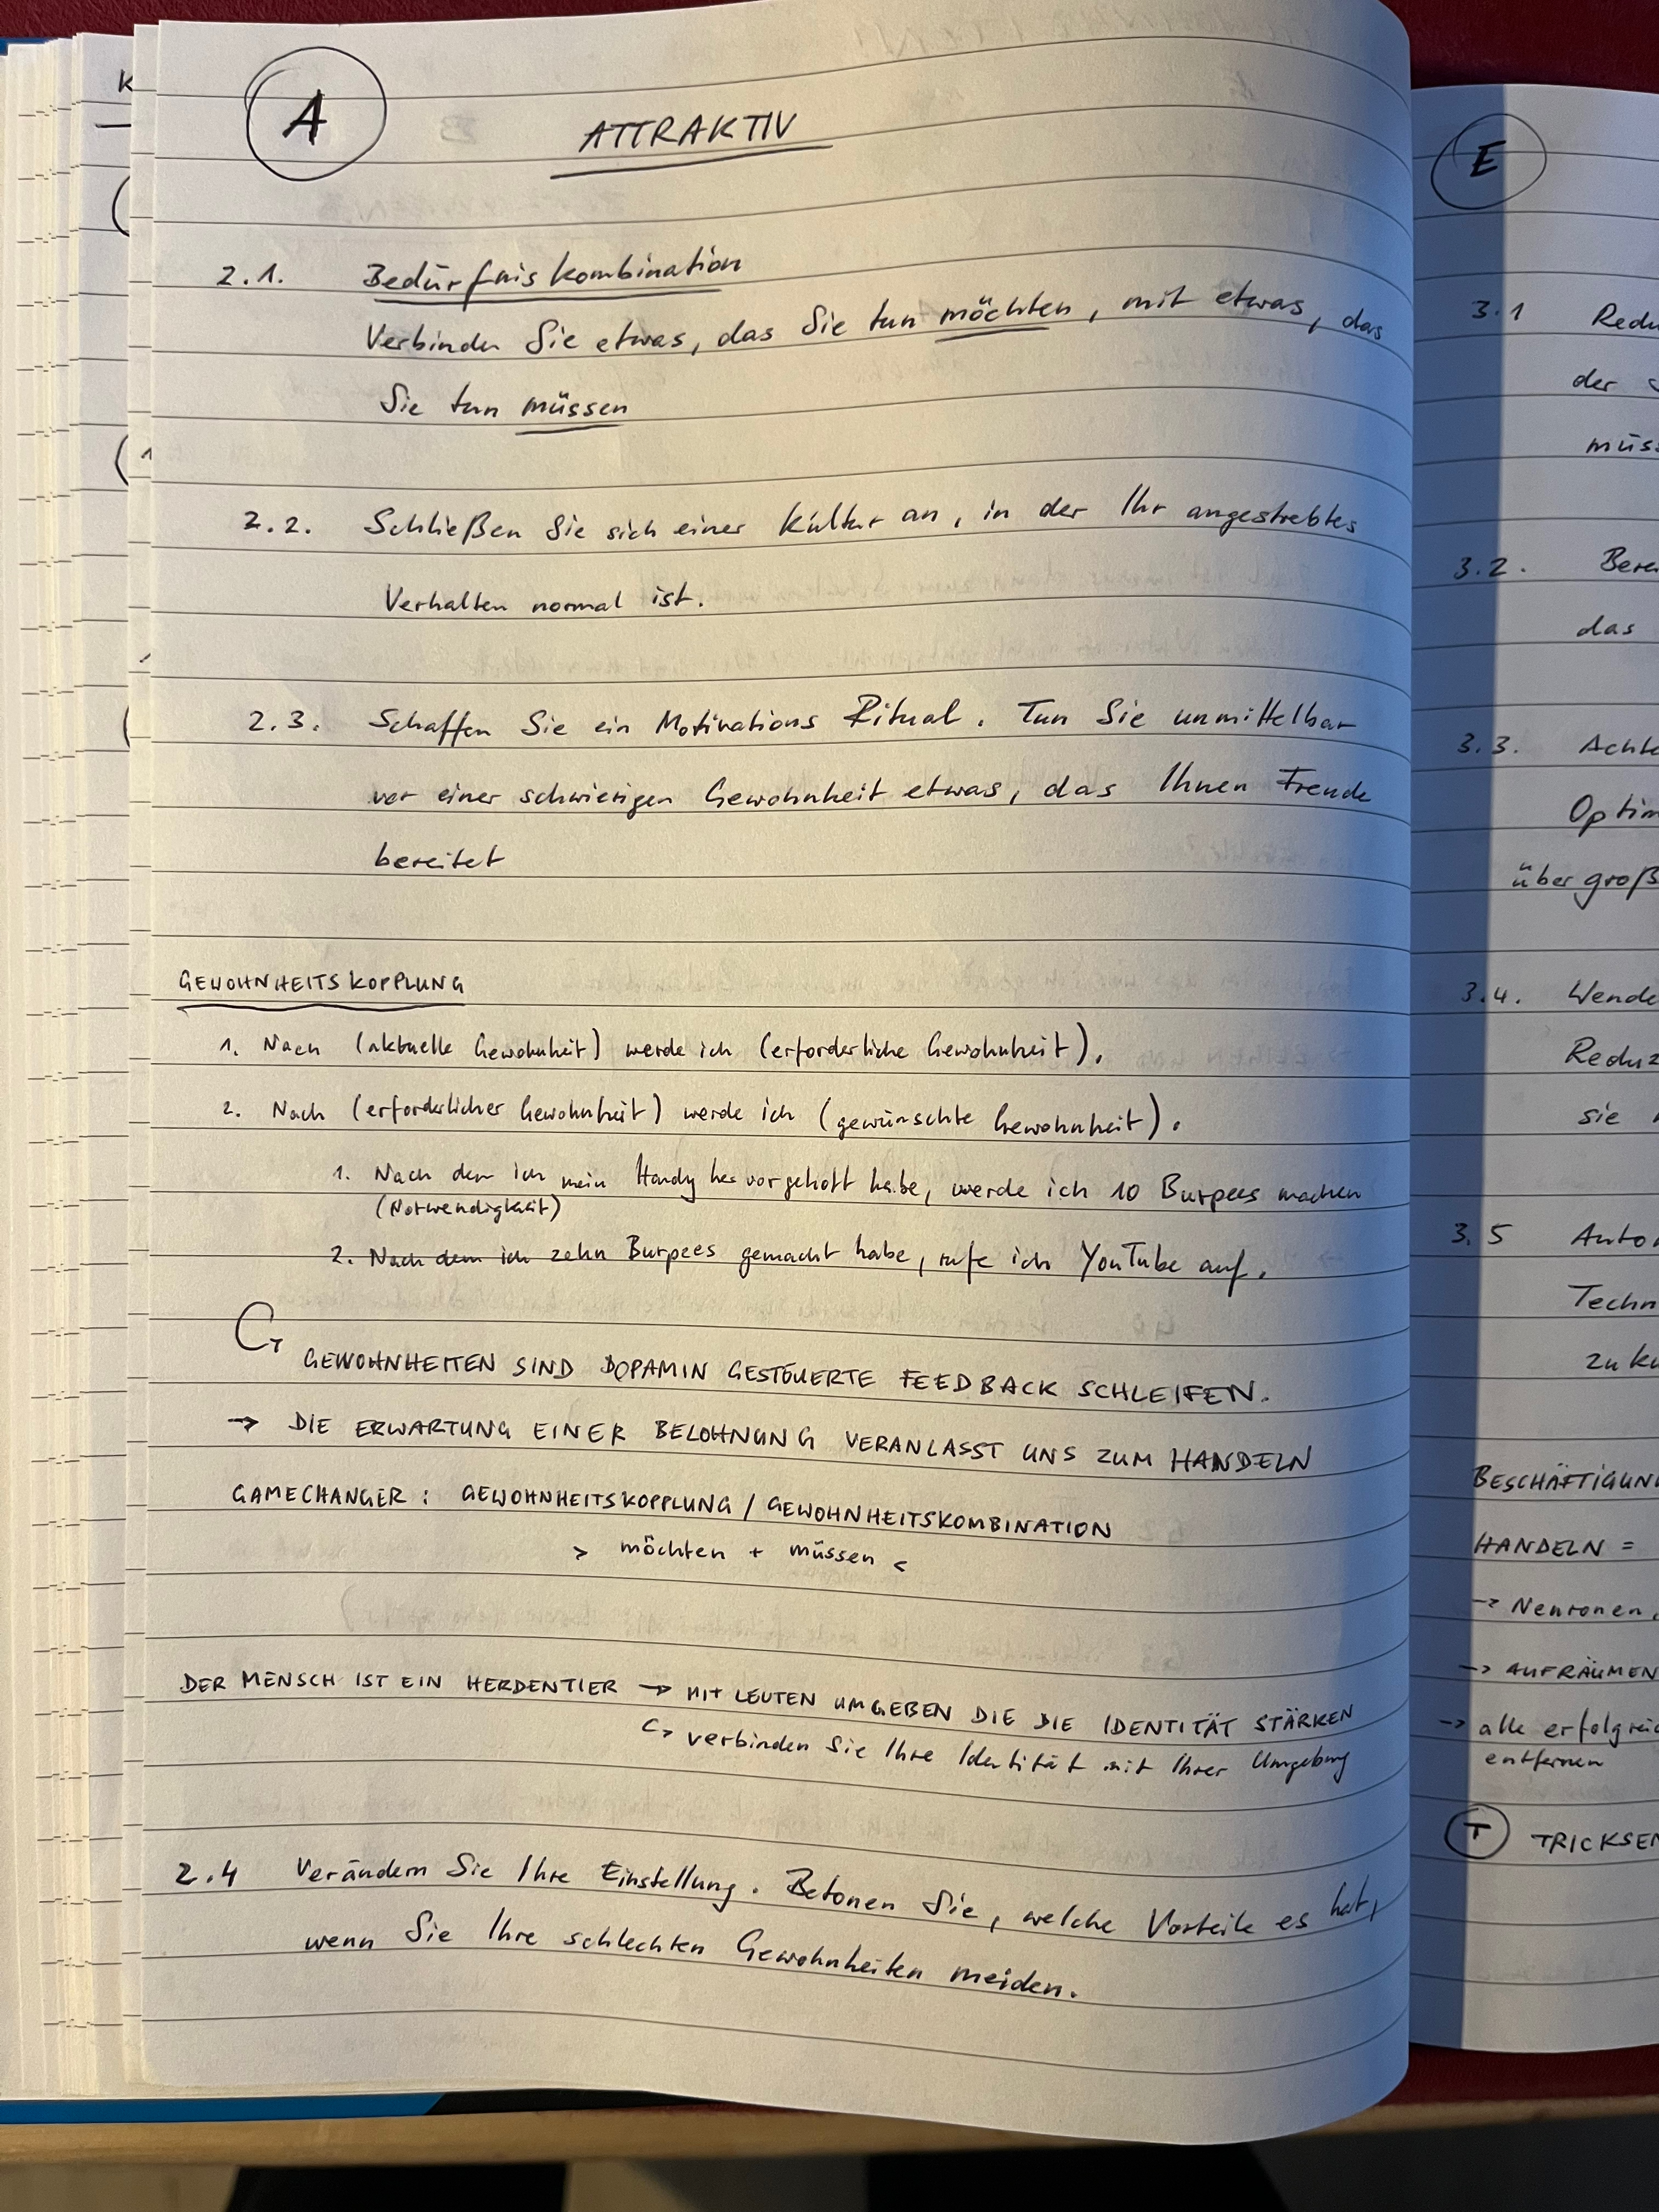 A
ATTRAKTIV
2.1. Bedürfniskombination
Verbinden Sie etwas, das Sie tun möchten, mit etwas, das
Sie tun müssen
2.2. Schließen Sie sich einer Kultur an, in der Ihr angestrebtes
Verhalten normal ist.
2.3. Schaffen Sie ein Motivations Ritual. Tun Sie unmittelbar
vor einer schwierigen Gewohnheit etwas, das Ihnen Freude
bereitet
GEWOHNHEITSKOPPLUNG
1. Nach (aktuelle Gewohnheit) werde ich (erforderliche Gewohnheit).
2. Nach (erforderlicher Gewohnheit) werde ich (gewünschte Gewohnheit).
1. Nach dem ich mein Handy hervorgeholt habe, werde ich 10 Burpees machen
(Notwendigkeit)
2. Nach dem ich zehn Burpees gemacht habe, rufe ich YouTube auf.
↳ GEWOHNHEITEN SIND DOPAMIN GESTEUERTE FEEDBACK SCHLEIFEN.
→ DIE ERWARTUNG EINER BELOHNUNG VERANLASST UNS ZUM HANDELN
GAMECHANGER: GEWOHNHEITSKOPPLUNG / GEWOHNHEITSKOMBINATION
> möchten + müssen <
DER MENSCH IST EIN HERDENTIER → MIT LEUTEN UMGEBEN DIE DIE IDENTITÄT STÄRKEN
↳ verbinden Sie Ihre Identität mit Ihrer Umgebung
2.4 Verändern Sie Ihre Einstellung. Betonen Sie, welche Vorteile es hat,
wenn Sie Ihre schlechten Gewohnheiten meiden.
E
3.1
der
3.2.
das
3.3.
über groß
3.4.
sie
3.5
BESCHÄFTIGUNG
HANDELN =
→ Neuronen
→ AUFRÄUMEN
→ alle
entfernen
T